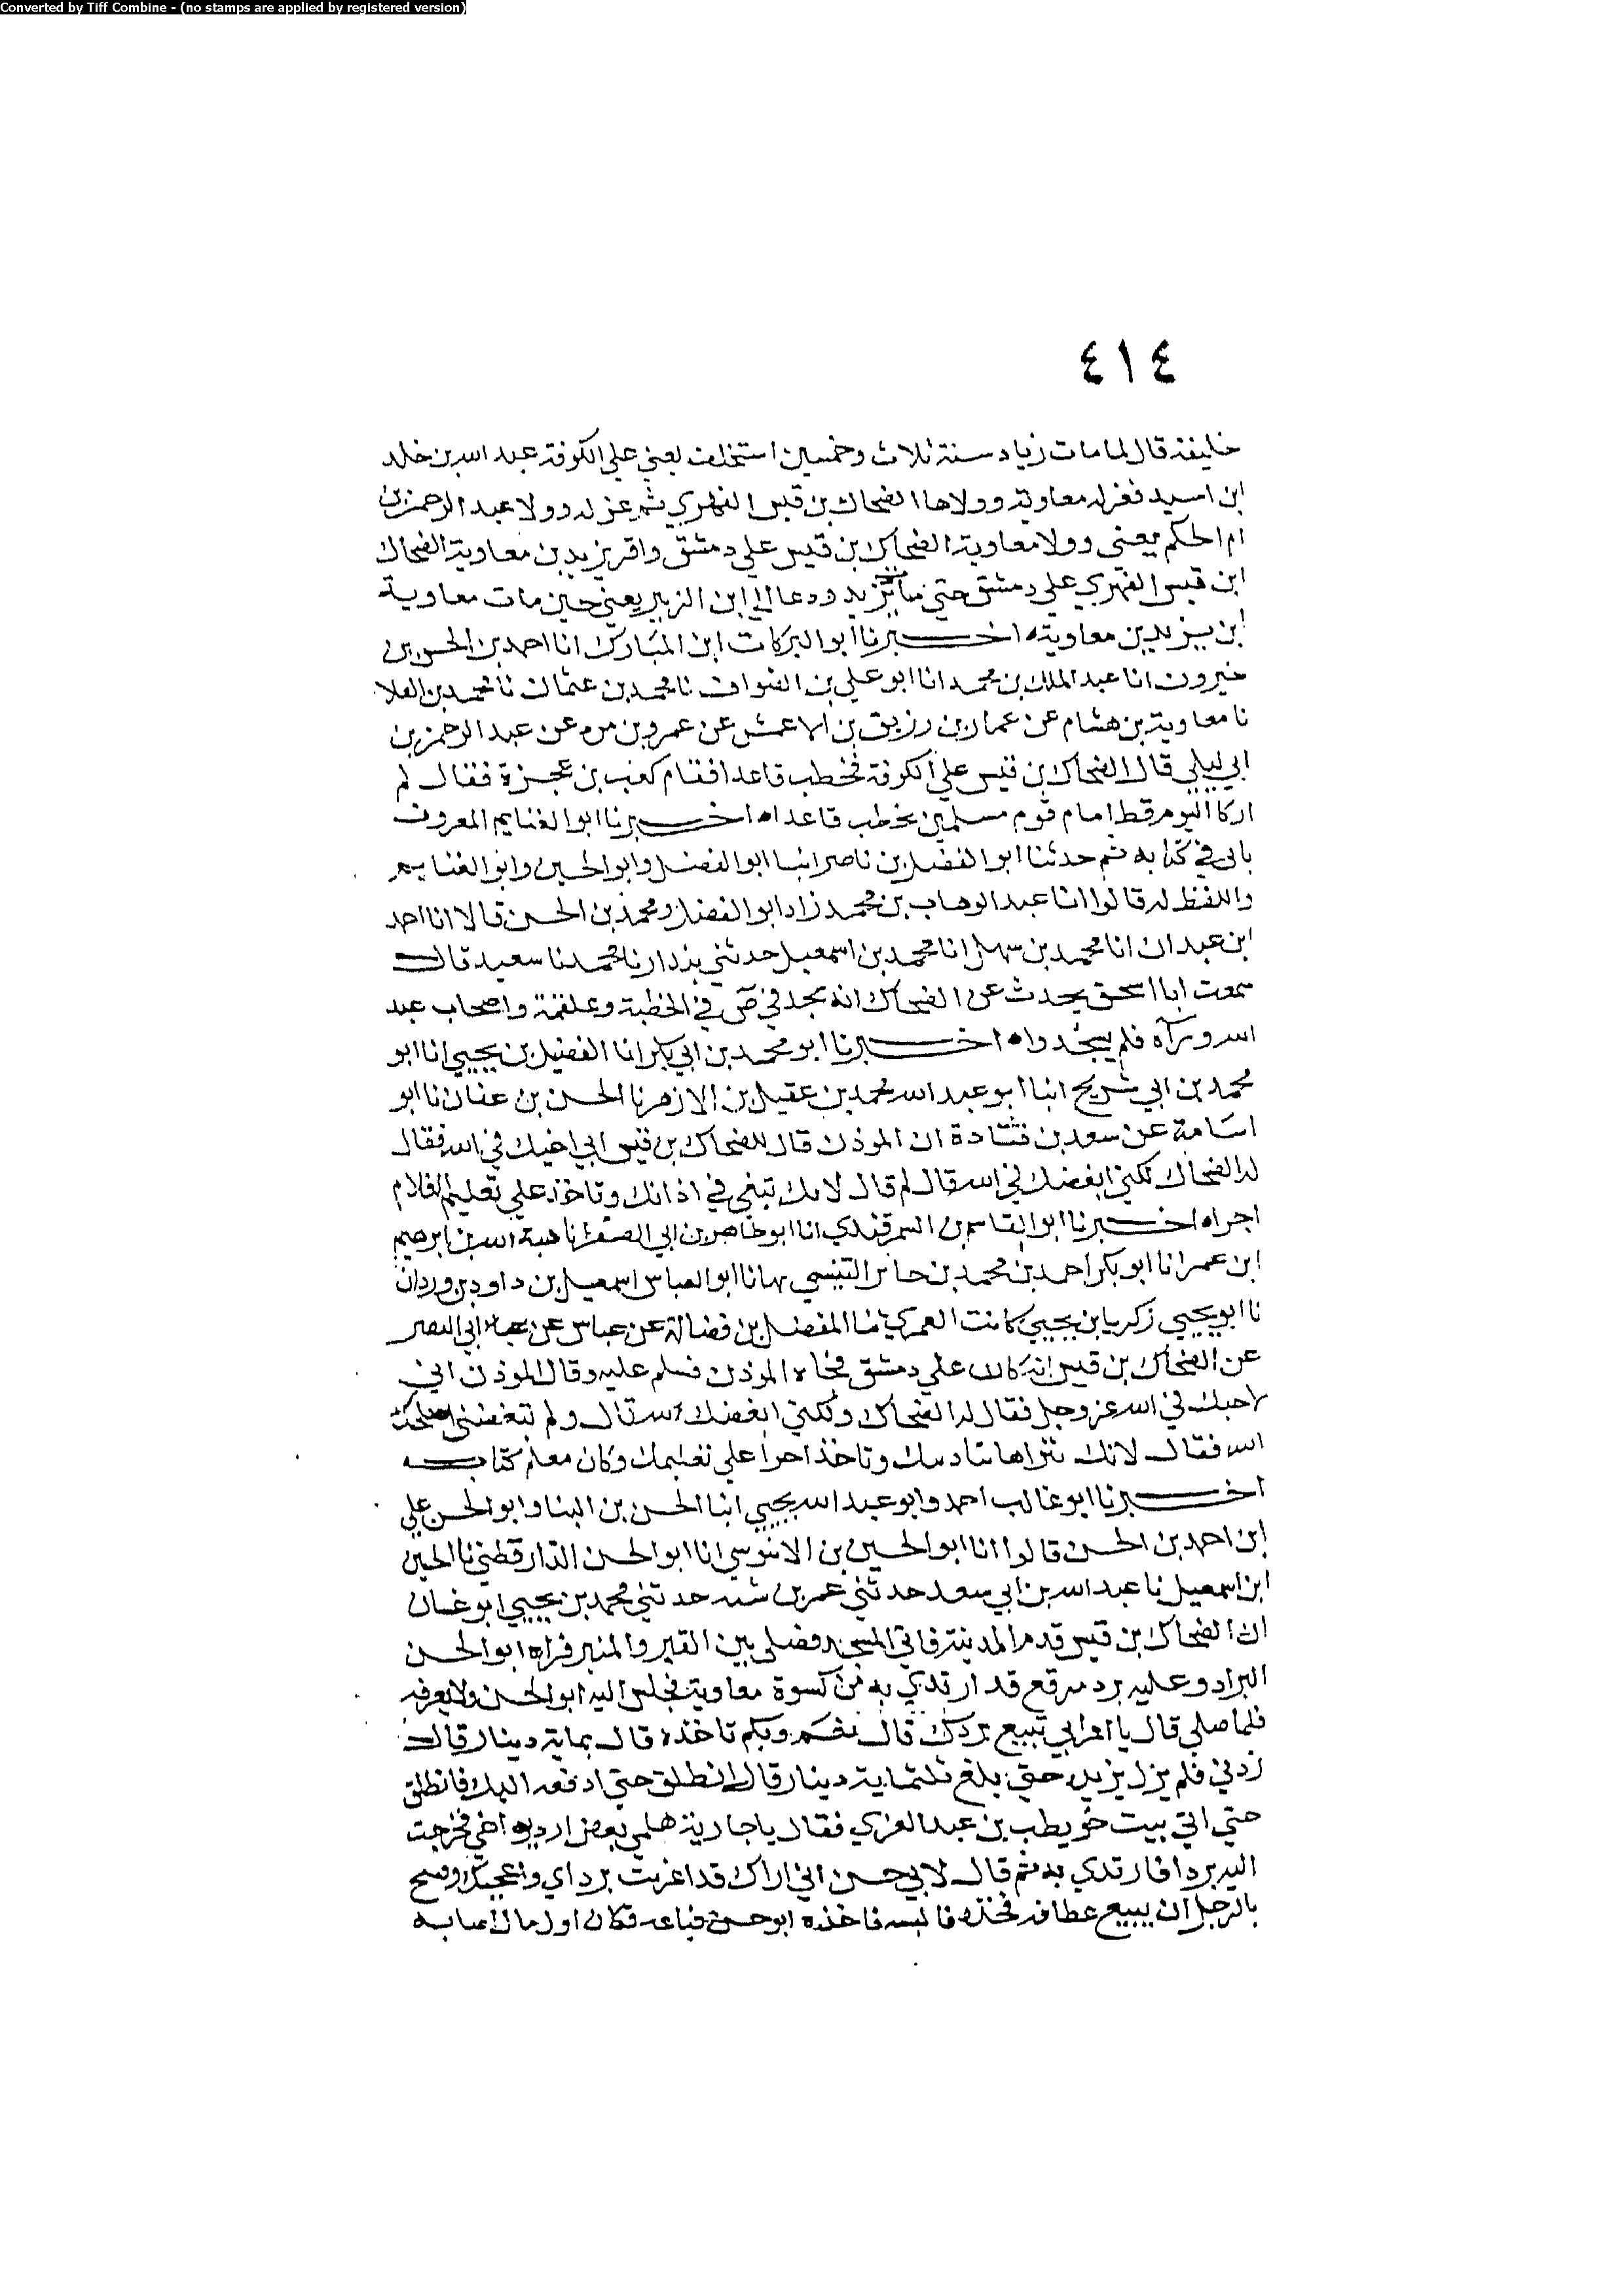 Converted by Tiff Combine - (no stamps are applied by registered version)
٤١٤
خليفة قال لما مات زياد سنة ثلاث وخمسين استخلف يعني علي الكوفة عبد الله بن خلد
ابن اسيد فعزله معاوية وولاها الضحاك بن قيس الفهري ثم عزله وولا عبد الرحمن بن
ام الحكم يعني وولا معاوية الضحاك بن قيس علي دمشق واقر يزيد بن معاوية الضحاك
ابن قيس الفهري علي دمشق حتي مات يزيد ودعا الي ابن الزبير يعني حين مات معاوية
ابن يزيد بن معاوية ه اخبرنا ابو البركات ابن المبارك انا احمد بن الحسن بن
خيرون انا عبد الملك بن محمد انا ابو علي بن الصواف نا محمد بن عثمان نا محمد بن العلا
نا معاوية بن هشام عن عمار بن رزيق بن الاعمش عن عمرو بن مره عن عبد الرحمن بن
ابي ليلي قال الضحاك بن قيس علي الكوفة فخطب قاعدا فقام كعب بن عجزة فقال لم
ار كاليوم قط امام قوم مسلمين يخطب قاعدا ه اخبرنا ابو الغنايم المعروف
بابي في كتابه ثم حدثنا ابو الفضل بن ناصر انبا ابو الفضل وابو الحسين وابو الغنايم
واللفظ له قالوا انا عبد الوهاب بن محمد زاد ابو الفضل ومحمد بن الحسن قالا انا احمد
ابن عبدان انا محمد بن سهل انا محمد بن اسمعيل حدثني بندار نا محمد نا سعيد قال
سمعت ابا اسحق يحدث عن الضحاك انه سجد في ص في الخطبة وعلقمة واصحاب عبد
الله وراه فلم يسجدوا ه اخبرنا ابو محمد بن ابي بكر انا الفضيل بن يحيي انا ابو
محمد بن ابي شريح انبا ابو عبد الله محمد بن عقيل بن الازهر نا الحسن بن عفان نا ابو
اسامة عن سعد بن قتادة ان الموذن قال للضحاك بن قيس اني احبك في الله فقال
له الضحاك لكني ابغضك في الله قال لم قال لانك تبغي في اذانك وتاخذ علي تعليم الغلام
اجرا ه اخبرنا ابو القاسم بن السمرقندي انا ابو طاهر بن ابي الصقر انا هبة الله بن ابرهيم
ابن عمر انا ابو بكر احمد بن محمد بن التنيسي بها نا ابو العباس اسمعيل بن داود بن وردان
نا ابو يحيي زكريا بن يحيي كاتب العمري نا المفضل بن فضالة عن عباس عن ابي النصر
عن الضحاك بن قيس انه كان علي دمشق فجاه الموذن فسلم عليه وقال الموذن اني
لاحبك في الله عز وجل فقال له الضحاك ولكني ابغضك لله قال ولم تبغضني اصلحك
الله فقال لانك وتاخذ اجرا علي تعليمك وكان معلم كتاب
اخبرنا ابو غالب احمد وابو عبد الله يحيي ابنا الحسن بن البنا وابو الحسن علي
ابن احمد بن الحسن قالوا انا ابو الحسين بن الابنوسي انا ابو الحسن الدارقطني نا الحسين
ابن اسمعيل نا عبد الله بن ابي سعد حدثني عمر بن شبه حدثني محمد بن يحيي ابو غسان
ان الضحاك بن قيس قدم المدينة فاتي المسجد فصلي بين القبر والمنبر فراه ابو الحسن
البراد وعليه برد مرقع قد ارتدي به من كسوة معاوية فجلس اليه ابو الحسن ولا يعرفه
فلما صلي قال يا اعرابي تبيع بردك قال نعم وبكم تاخذه قال بماية دينار قال
زدني فلم يزل يزيد حتي بلغ ثلثماية دينار قال انطلق حتي ادفعه اليك فانطلق
حتي اتي بيت حويطب بن عبد العزي فقال يا جارية هلمي بعض اردية اخي فخرجت
اليه بردا فارتدي به ثم قال لابي حسن اني اراك قد اغريت بردائي واعجبك وقبيح
بالرجل ان يبيع عطافه فخذه فالبسه فاخذه ابو حسن فباعه فكان اول مال اصابه